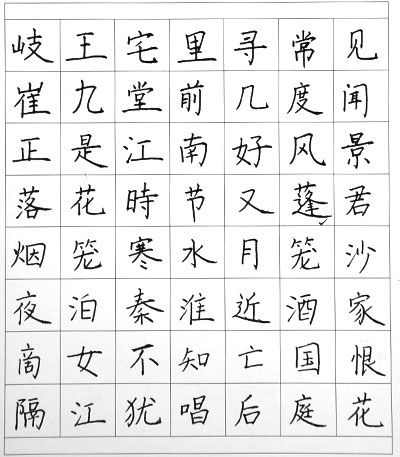 岐王宅里寻常见
崔九堂前几度闻
正是江南好风景
落花時节又蓬君
烟笼寒水月笼沙
夜泊秦淮近酒家
商女不知亡国恨
隔江犹唱后庭花